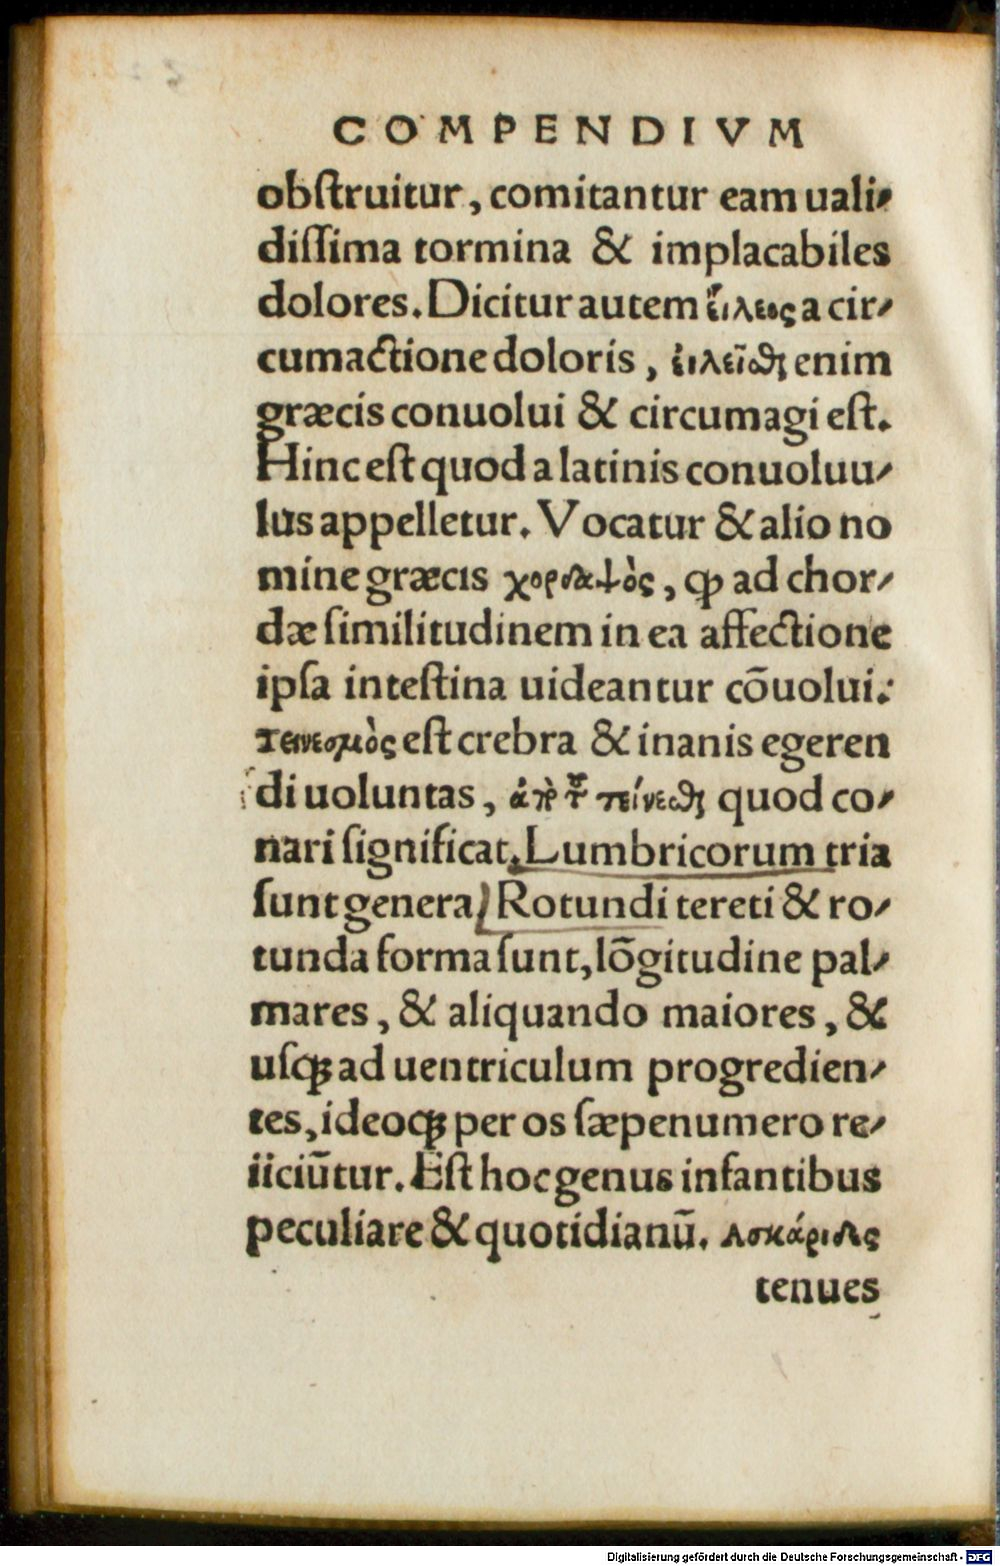 COMPENDIVM
obſtruitur, comitantur eam uali⸗
diſſima tormina & implacabiles
dolores. Dicitur autem εἴλεος a cir⸗
cumactione doloris, εἰλεῖσθαι enim
græcis conuolui & circumagi eſt.
Hinc eſt quod a latinis conuoluu⸗
lus appelletur. Vocatur & alio no
mine græcis χορδαψὸς, ꝙ ad chor⸗
dæ ſimilitudinem in ea affectione
ipſa inteſtina uideantur cōuolui.
τεινεσμὸς eſt crebra & inanis egeren
di uoluntas, ἀπὸ τοῦ τείνεσθαι quod co⸗
nari significat. Lumbricorum tria
ſunt genera, Rotundi tereti & ro⸗
tunda forma ſunt, lōgitudine pal⸗
mares, & aliquando maiores, &
uſqꝫ ad uentriculum progredien⸗
tes, ideoqꝫ per os ſæpenumero re⸗
iiciūtur. Eſt hoc genus infantibus
peculiare & quotidianū. Ασκάριδες
tenues
Digitalisierung gefördert durch die Deutsche Forschungsgemeinschaft - DFG